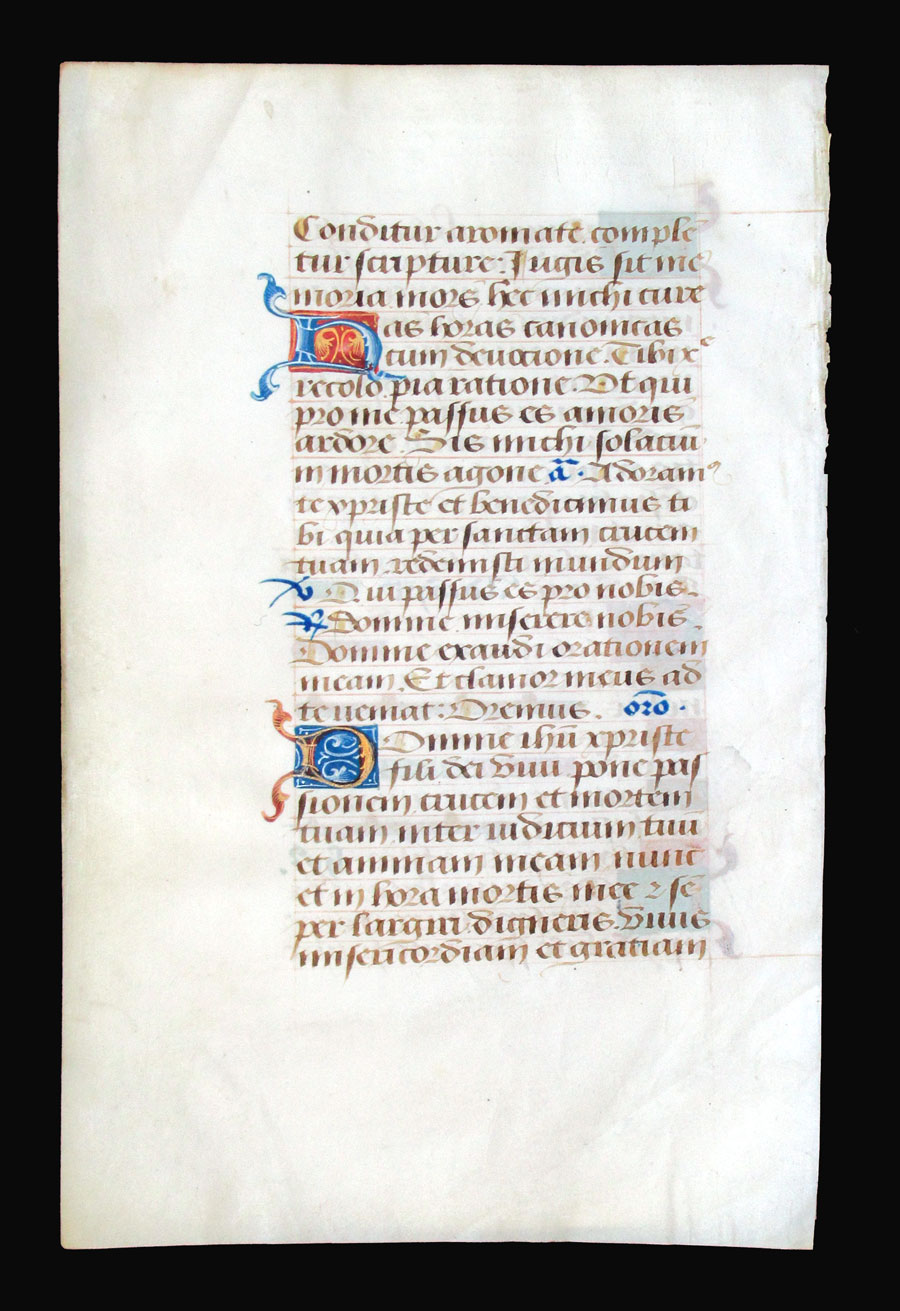 Conditur aromate comple
tur scripture: Jugis sit me
moria mors hec michi cure
Has horas canonicas
cum devocione. Tibi xᵉ
recolo pia ratione. Ut qui
pro me passus es amoris
ardore. Sis michi solaciū
in mortis agone a̅. Adoramꝰ
te xpriste et benedicimus ti
bi quia per sanctam crucem
tuam redemisti mundum
℣ Qui passus es pro nobis.
℟ Domine miserere nobis.
Domine exaudi orationem
meam. Et clamor meus ad
te veniat: Oremus. oro̅.
Domine ihū xpriste
fili dei vivi pone pas
sionem crucem et mortem
tuam inter iudicium tuū
et animam meam nunc
et in hora mortis mee ⁊ se
per largiri digneris. vivis
misericordiam et gratiam